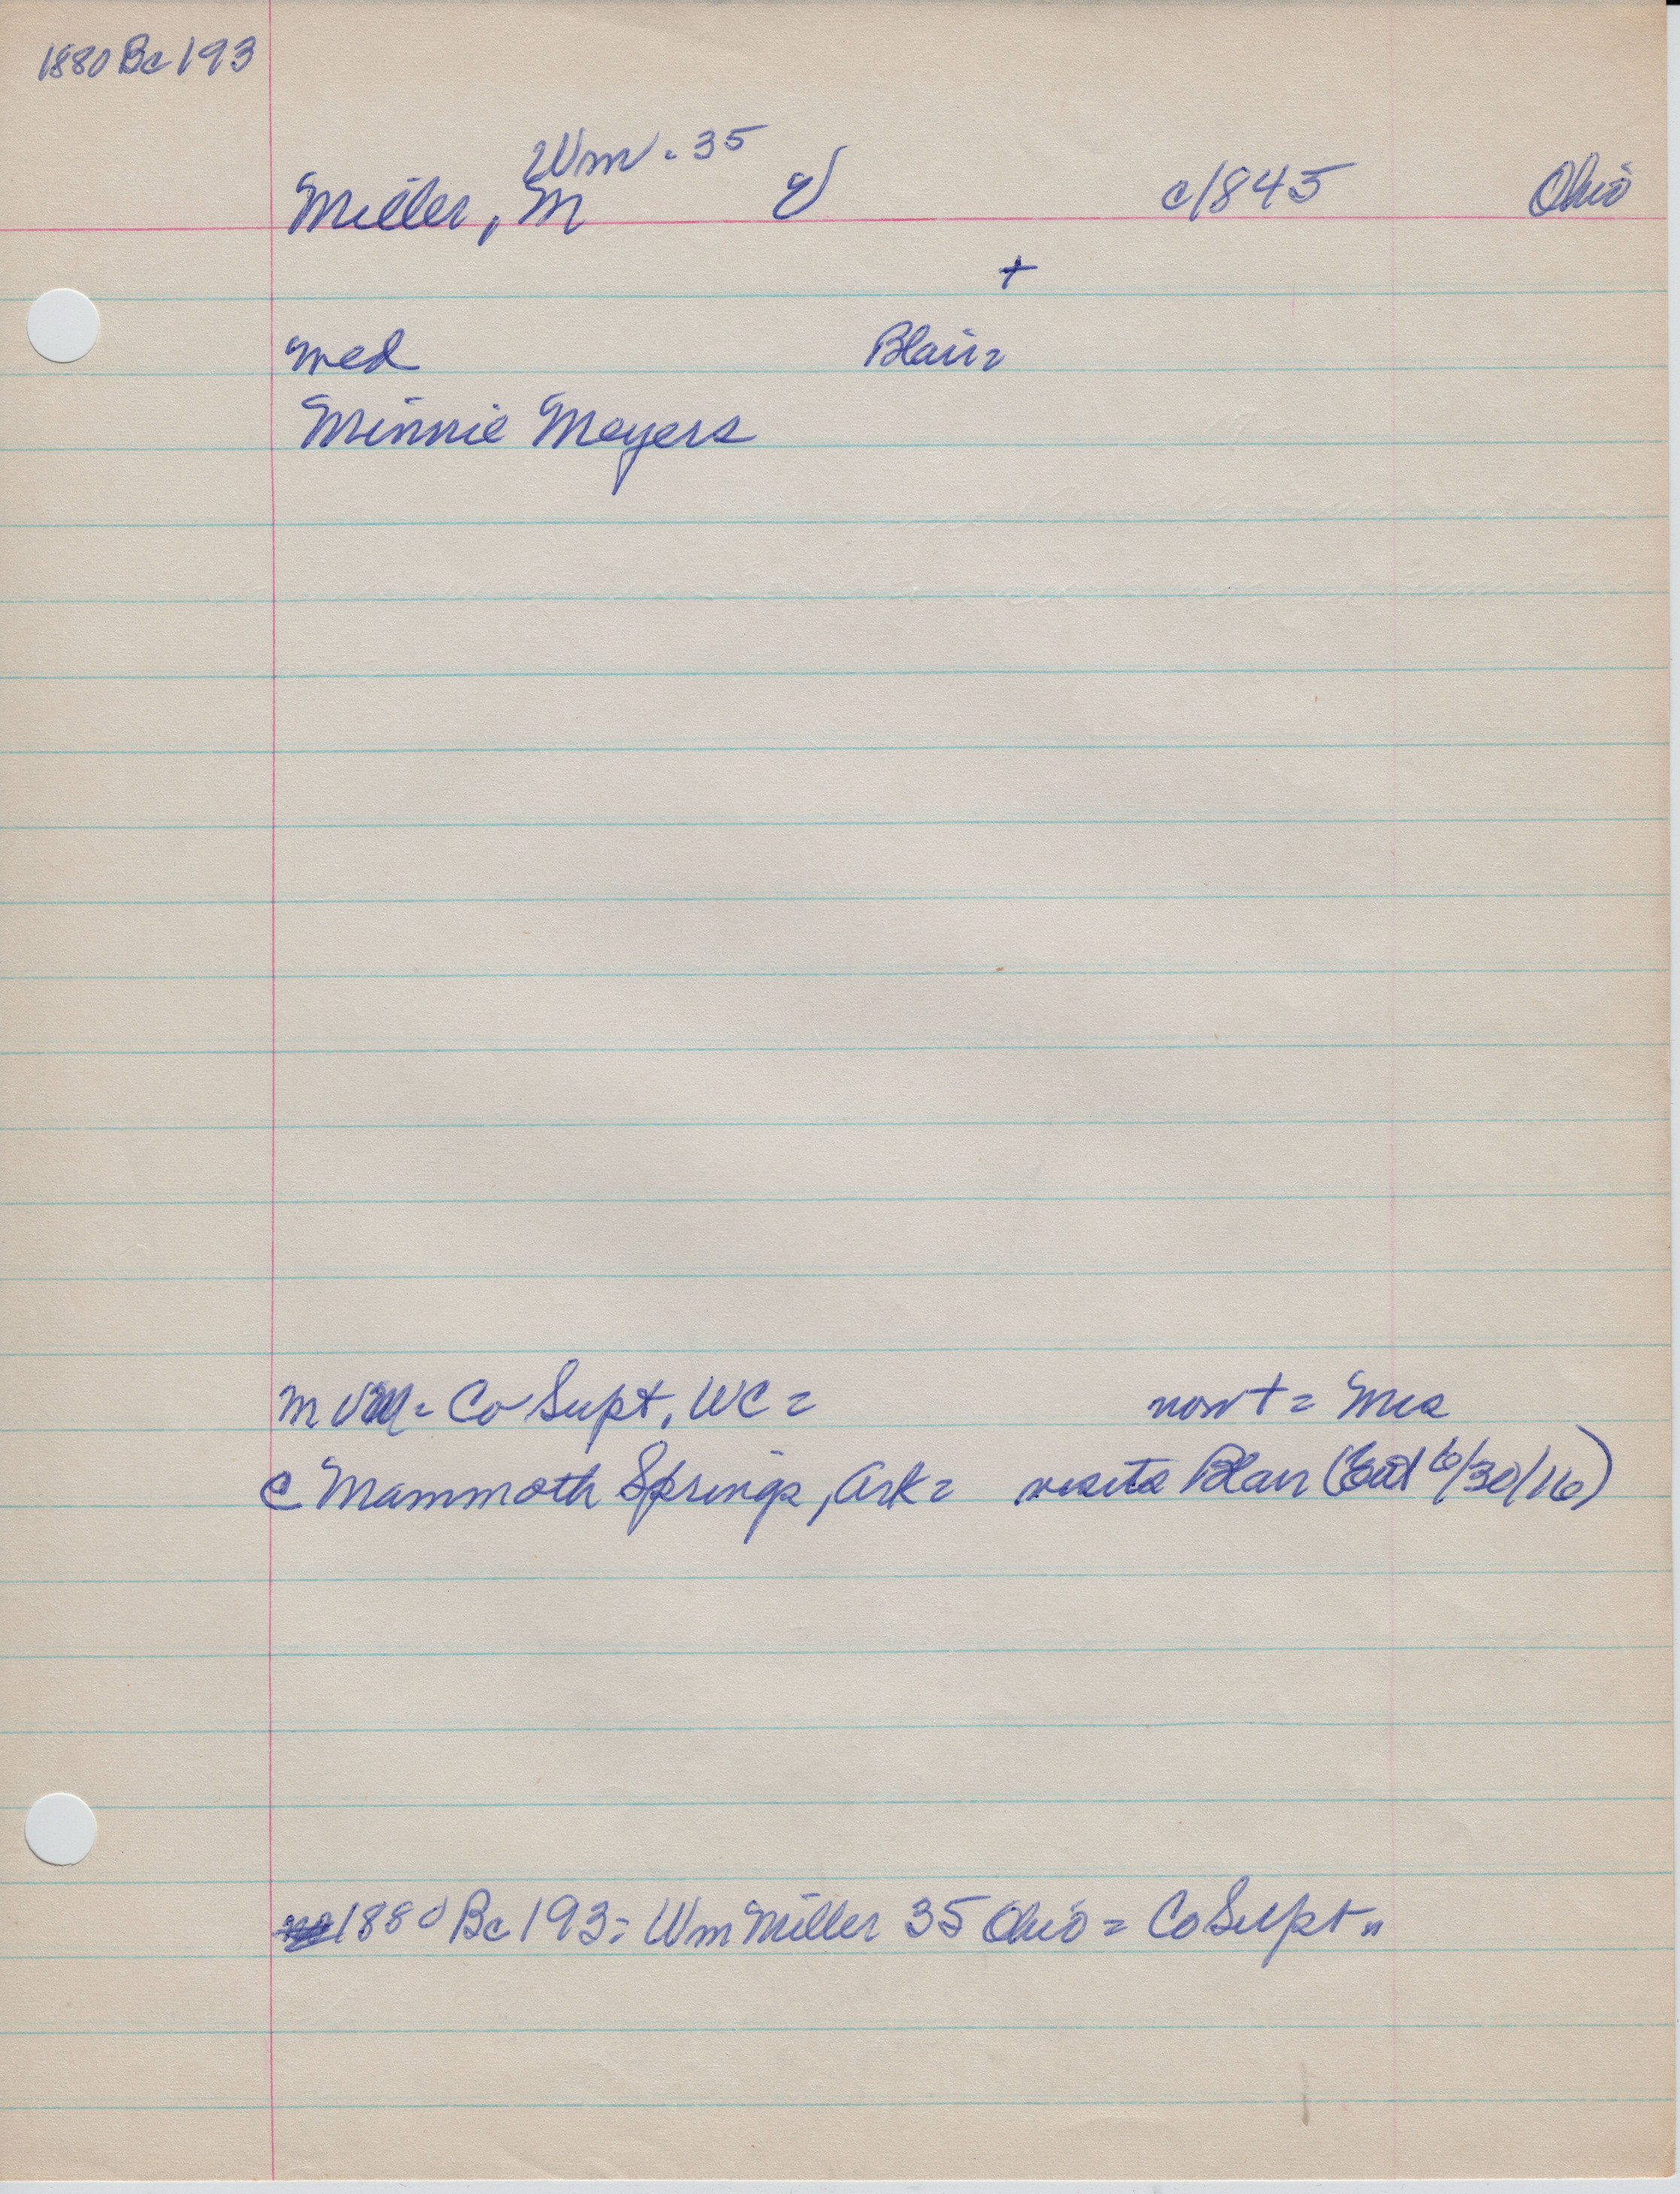 1880 Bc 193
Wm. 35
Miller, M c/845 Ohio
+
med Blair=
Minnie Meyers
Co Supt, WC = now + = Mrs
@ Mammoth Springs, Ark= visits Blair (Ent 6/30/16)
1880 Bc 193= Wm Miller 35 Ohio = Co Supt "